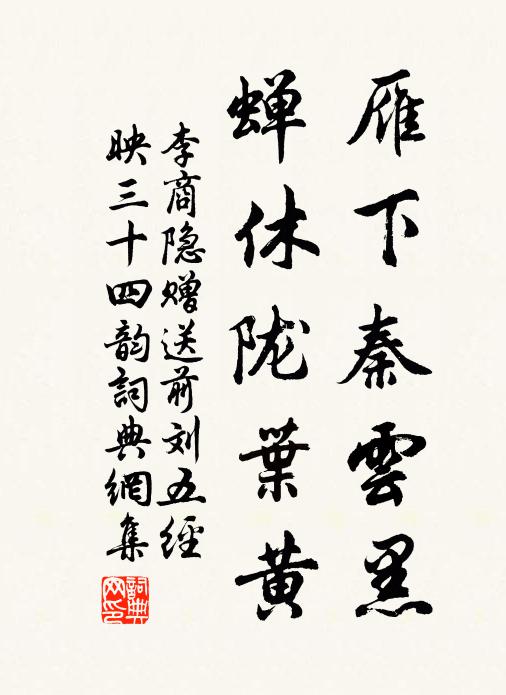 雁下秦雲黑
蝉休陇葉黄
李商隐赠送前刘五經
映三十四韵詞典網集
詞典网印